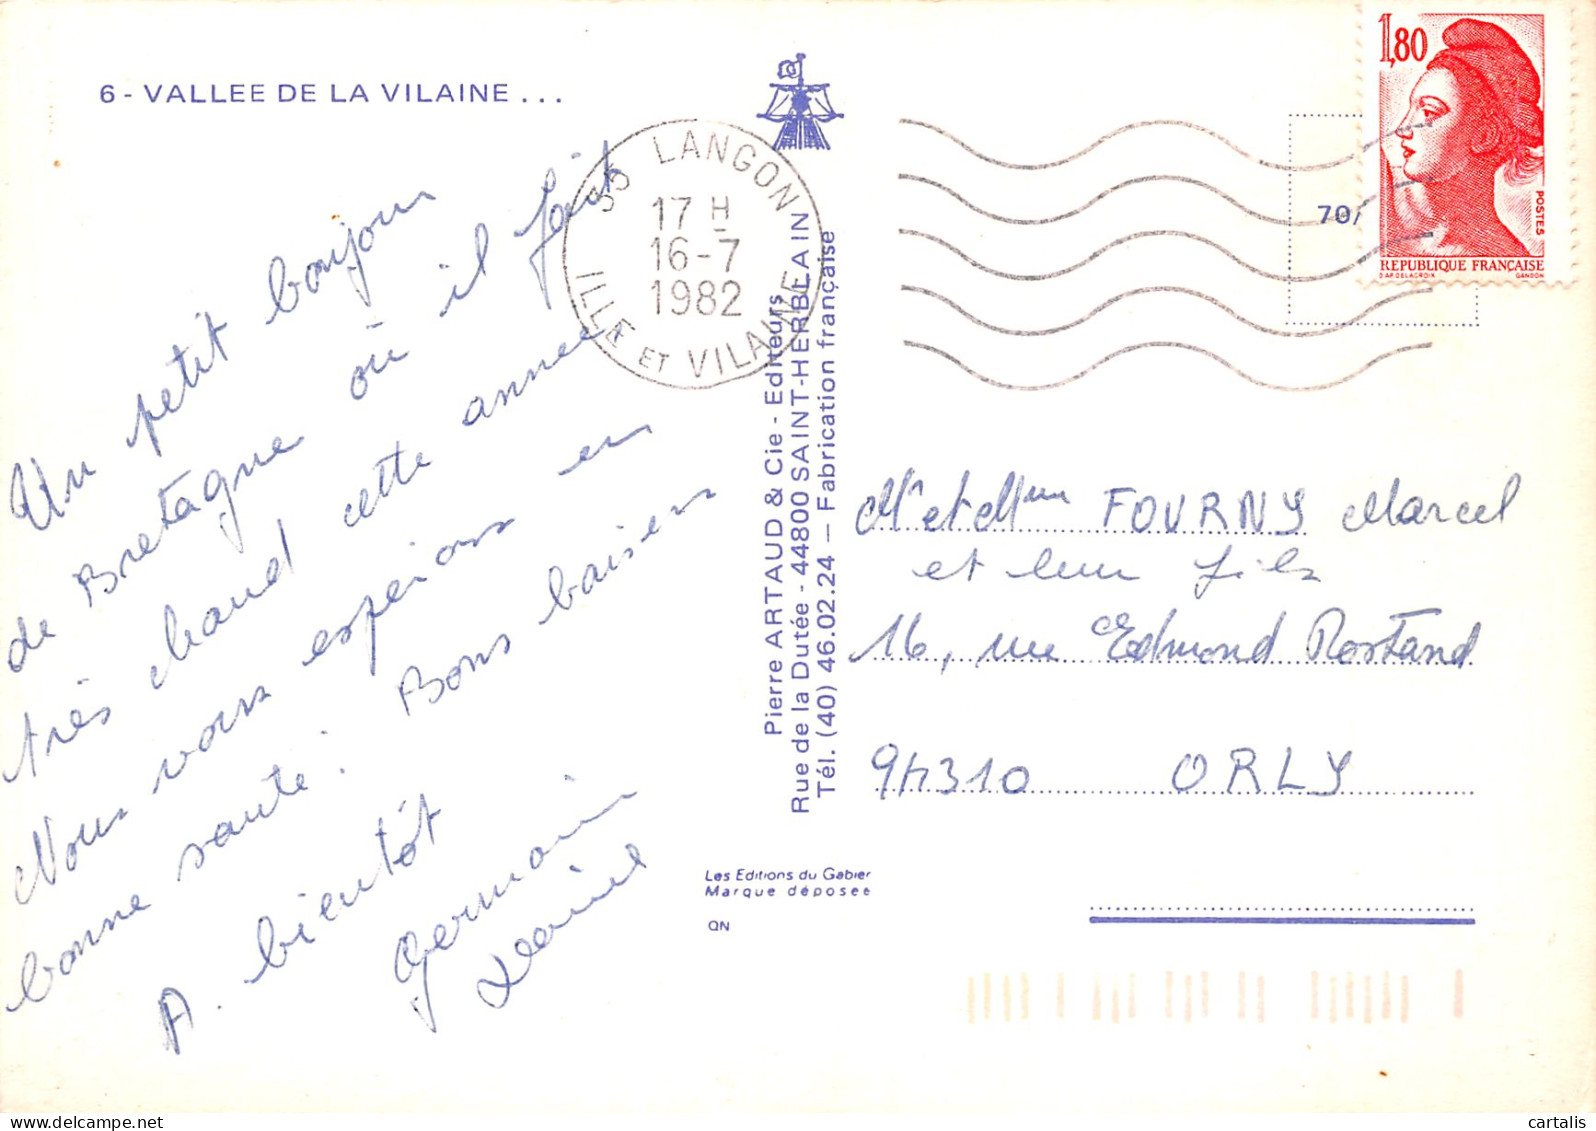 6 - VALLEE DE LA VILAINE ...
Un petit bonjour
de Bretagne où il fait
très chaud cette année.
Nous vous espérons en
bonne santé. Bons baisers
A bientôt
Germain
35 LANGON
17 H
16-7
1982
ILLE ET VILAINE
Pierre ARTAUD & Cie - Editeurs
Rue de la Dutée - 44800 SAINT-HERBLAIN
Tél. (40) 46.02.24 — Fabrication française
Les Editions du Gabier
Marque déposée
QN
1,80
POSTES
REPUBLIQUE FRANÇAISE
D'AP. DELACROIX GANDON
70/
Mr et Mme FOURNY Marcel
et leur fils
16, rue Edmond Rostand
94310 ORLY
cartalis